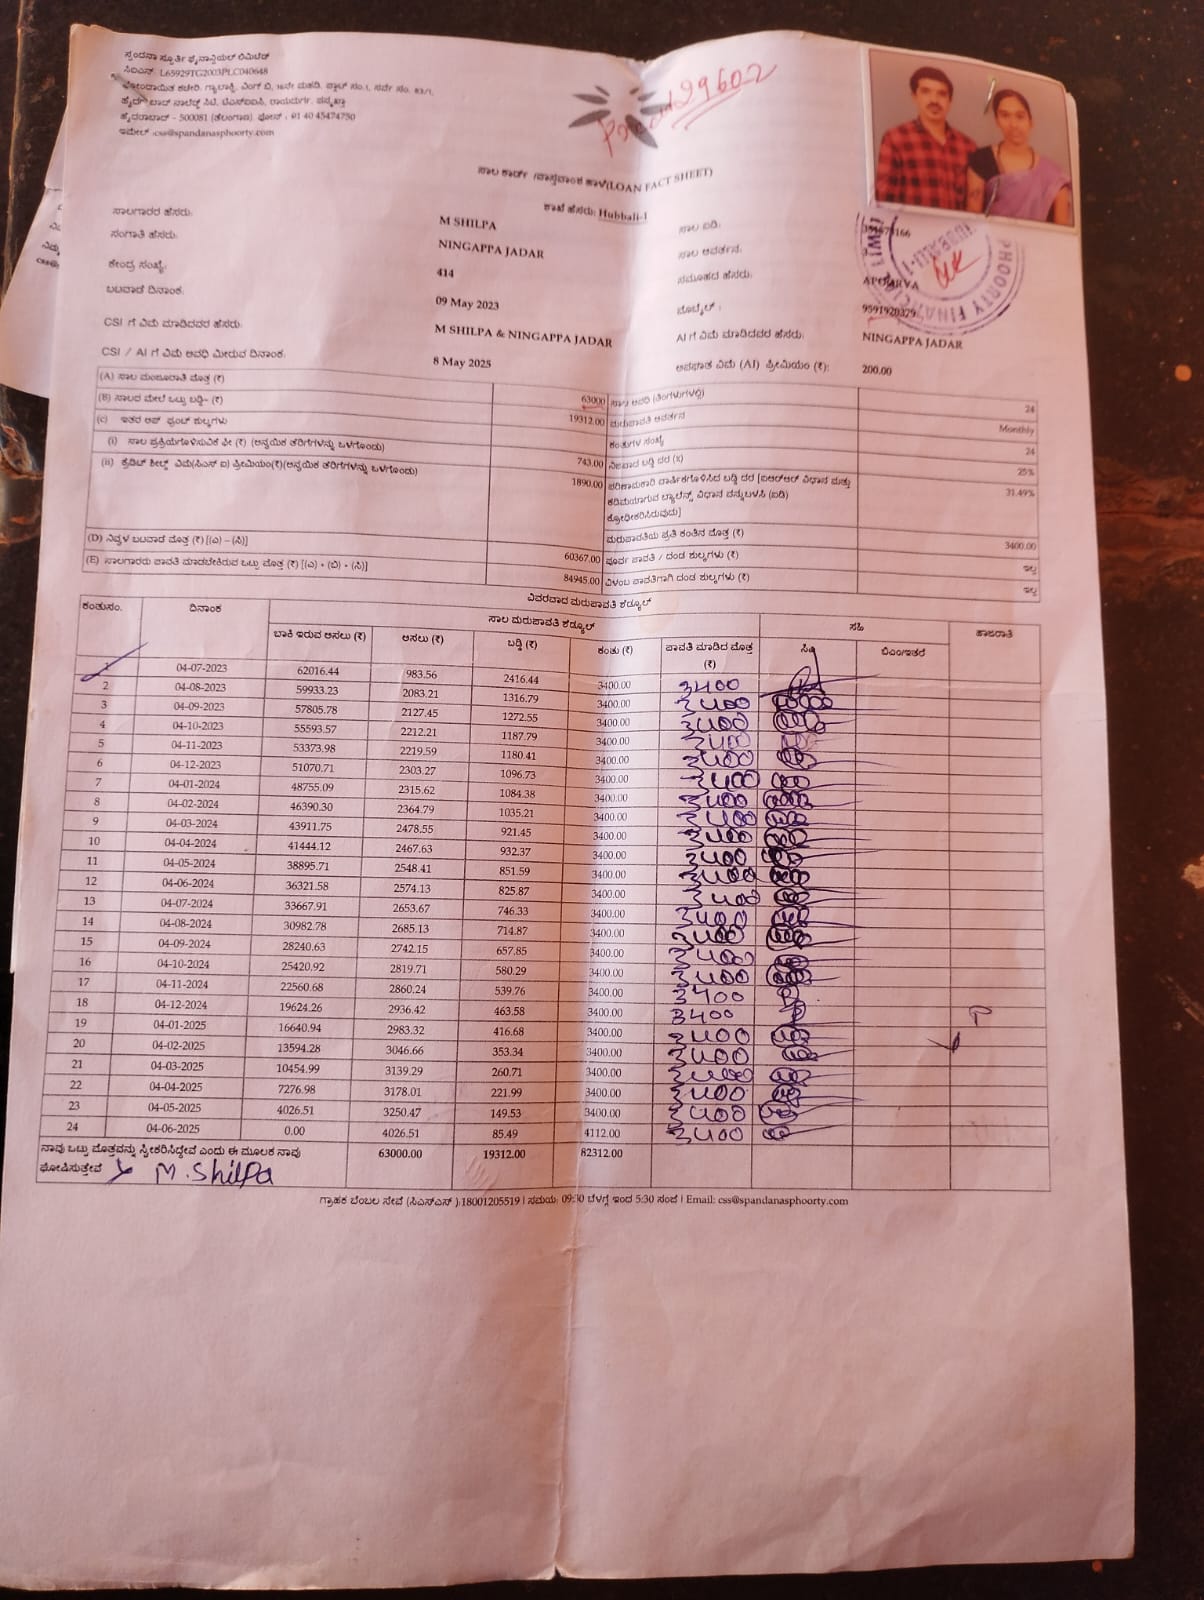 ಸ್ಪಂದನಾ ಸ್ಫೂರ್ತಿ ಫೈನಾನ್ಷಿಯಲ್ ಲಿಮಿಟೆಡ್
ಸಿಐಎನ್: L65929TG2003PLC040648
ಹೈದರಾಬಾದ್ - 500081 (ತೆಲಂಗಾಣ) ಫೋನ್ : 91 40 45474750
ಇಮೇಲ್ :css@spandanasphoorty.com
29602
ಸಾಲ ಕಾರ್ಡ್ /ವಾಸ್ತವಾಂಶ ಹಾಳೆ(LOAN FACT SHEET)
ಶಾಖೆ ಹೆಸರು: Hubbali-1
ಸಾಲಗಾರರ ಹೆಸರು: M SHILPA ಸಾಲ ಐಡಿ:
ಸಂಗಾತಿ ಹೆಸರು: NINGAPPA JADAR ಸಾಲ ಆವರ್ತನ:
ಕೇಂದ್ರ ಸಂಖ್ಯೆ: 414 ಸಮೂಹದ ಹೆಸರು: APOORVA
ಬಟವಾಡೆ ದಿನಾಂಕ: 09 May 2023 ಮೊಬೈಲ್ : 9591920379
CSI ಗೆ ವಿಮೆ ಮಾಡಿದವರ ಹೆಸರು: M SHILPA & NINGAPPA JADAR AI ಗೆ ವಿಮೆ ಮಾಡಿದವರ ಹೆಸರು: NINGAPPA JADAR
CSI / AI ಗೆ ವಿಮೆ ಅವಧಿ ಮೀರುವ ದಿನಾಂಕ: 8 May 2025 ಅಪಘಾತ ವಿಮೆ (AI) ಪ್ರೀಮಿಯಂ (₹): 200.00
(A) ಸಾಲ ಮಂಜೂರಾತಿ ಮೊತ್ತ (₹) 63000 ಸಾಲ ಅವಧಿ (ತಿಂಗಳುಗಳಲ್ಲಿ) 24
(B) ಸಾಲದ ಮೇಲೆ ಒಟ್ಟು ಬಡ್ಡಿ- (₹) 19312.00 ಮರುಪಾವತಿ ಆವರ್ತನ Monthly
(c) ಇತರ ಅಪ್ ಫ್ರಂಟ್ ಶುಲ್ಕಗಳು ಕಂತುಗಳ ಸಂಖ್ಯೆ 24
(i) ಸಾಲ ಪ್ರಕ್ರಿಯೆಗೊಳಿಸುವಿಕೆ ಫೀ (₹) (ಅನ್ವಯಿಕ ತೆರಿಗೆಗಳನ್ನು ಒಳಗೊಂಡು) 743.00 ನಿಜವಾದ ಬಡ್ಡಿ ದರ (%) 25%
(ii) ಕ್ರೆಡಿಟ್ ಶೀಲ್ಡ್ ವಿಮೆ(ಸಿಎಸ್ ಐ) ಪ್ರೀಮಿಯಂ(₹)(ಅನ್ವಯಿಕ ತೆರಿಗೆಗಳನ್ನು ಒಳಗೊಂಡು) 1890.00 31.49%
ಮರುಪಾವತಿಯ ಪ್ರತಿ ಕಂತಿನ ಮೊತ್ತ (₹) 3400.00
(D) ನಿವ್ವಳ ಬಟವಾಡೆ ಮೊತ್ತ (₹) [(ಎ) – (ಸಿ)] 60367.00 ಪೂರ್ವ ಪಾವತಿ / ದಂಡ ಶುಲ್ಕಗಳು (₹) ಇಲ್ಲ
(E) ಸಾಲಗಾರರು ಪಾವತಿ ಮಾಡಬೇಕಿರುವ ಒಟ್ಟು ಮೊತ್ತ (₹) [(ಎ) + (ಬಿ) + (ಸಿ)] 84945.00 ವಿಳಂಬ ಪಾವತಿಗಾಗಿ ದಂಡ ಶುಲ್ಕಗಳು (₹) ಇಲ್ಲ
ವಿವರವಾದ ಮರುಪಾವತಿ ಶೆಡ್ಯೂಲ್
ಕಂತುಸಂ. ದಿನಾಂಕ ಸಾಲ ಮರುಪಾವತಿ ಶೆಡ್ಯೂಲ್ ಸಹಿ ಹಾಜರಾತಿ
ಬಾಕಿ ಇರುವ ಅಸಲು (₹) ಅಸಲು (₹) ಬಡ್ಡಿ (₹) ಕಂತು (₹) ಪಾವತಿ ಮಾಡಿದ ಮೊತ್ತ (₹)
1 04-07-2023 62016.44 983.56 2416.44 3400.00 3400
2 04-08-2023 59933.23 2083.21 1316.79 3400.00 3400
3 04-09-2023 57805.78 2127.45 1272.55 3400.00 3400
4 04-10-2023 55593.57 2212.21 1187.79 3400.00 3400
5 04-11-2023 53373.98 2219.59 1180.41 3400.00 3400
6 04-12-2023 51070.71 2303.27 1096.73 3400.00 3400
7 04-01-2024 48755.09 2315.62 1084.38 3400.00 3400
8 04-02-2024 46390.30 2364.79 1035.21 3400.00 3400
9 04-03-2024 43911.75 2478.55 921.45 3400.00 3400
10 04-04-2024 41444.12 2467.63 932.37 3400.00 3400
11 04-05-2024 38895.71 2548.41 851.59 3400.00 3400
12 04-06-2024 36321.58 2574.13 825.87 3400.00 3400
13 04-07-2024 33667.91 2653.67 746.33 3400.00 3400
14 04-08-2024 30982.78 2685.13 714.87 3400.00 3400
15 04-09-2024 28240.63 2742.15 657.85 3400.00 3400
16 04-10-2024 25420.92 2819.71 580.29 3400.00 3400
17 04-11-2024 22560.68 2860.24 539.76 3400.00 3400
18 04-12-2024 19624.26 2936.42 463.58 3400.00 3400
19 04-01-2025 16640.94 2983.32 416.68 3400.00 3400
20 04-02-2025 13594.28 3046.66 353.34 3400.00 3400
21 04-03-2025 10454.99 3139.29 260.71 3400.00 3400
22 04-04-2025 7276.98 3178.01 221.99 3400.00 3400
23 04-05-2025 4026.51 3250.47 149.53 3400.00 3400
24 04-06-2025 0.00 4026.51 85.49 4112.00 3400
ನಾವು ಒಟ್ಟು ಮೊತ್ತವನ್ನು ಸ್ವೀಕರಿಸಿದ್ದೇವೆ ಎಂದು ಈ ಮೂಲಕ ನಾವು 63000.00 19312.00 82312.00
ಘೋಷಿಸುತ್ತೇವೆ M. Shilpa
ಗ್ರಾಹಕ ಬೆಂಬಲ ಸೇವೆ (ಸಿಎಸ್ಎಸ್ ):18001205519 | ಸಮಯ: 09:30 ಬೆಳಗ್ಗೆ ಇಂದ 5:30 ಸಂಜೆ | Email: css@spandanasphoorty.com